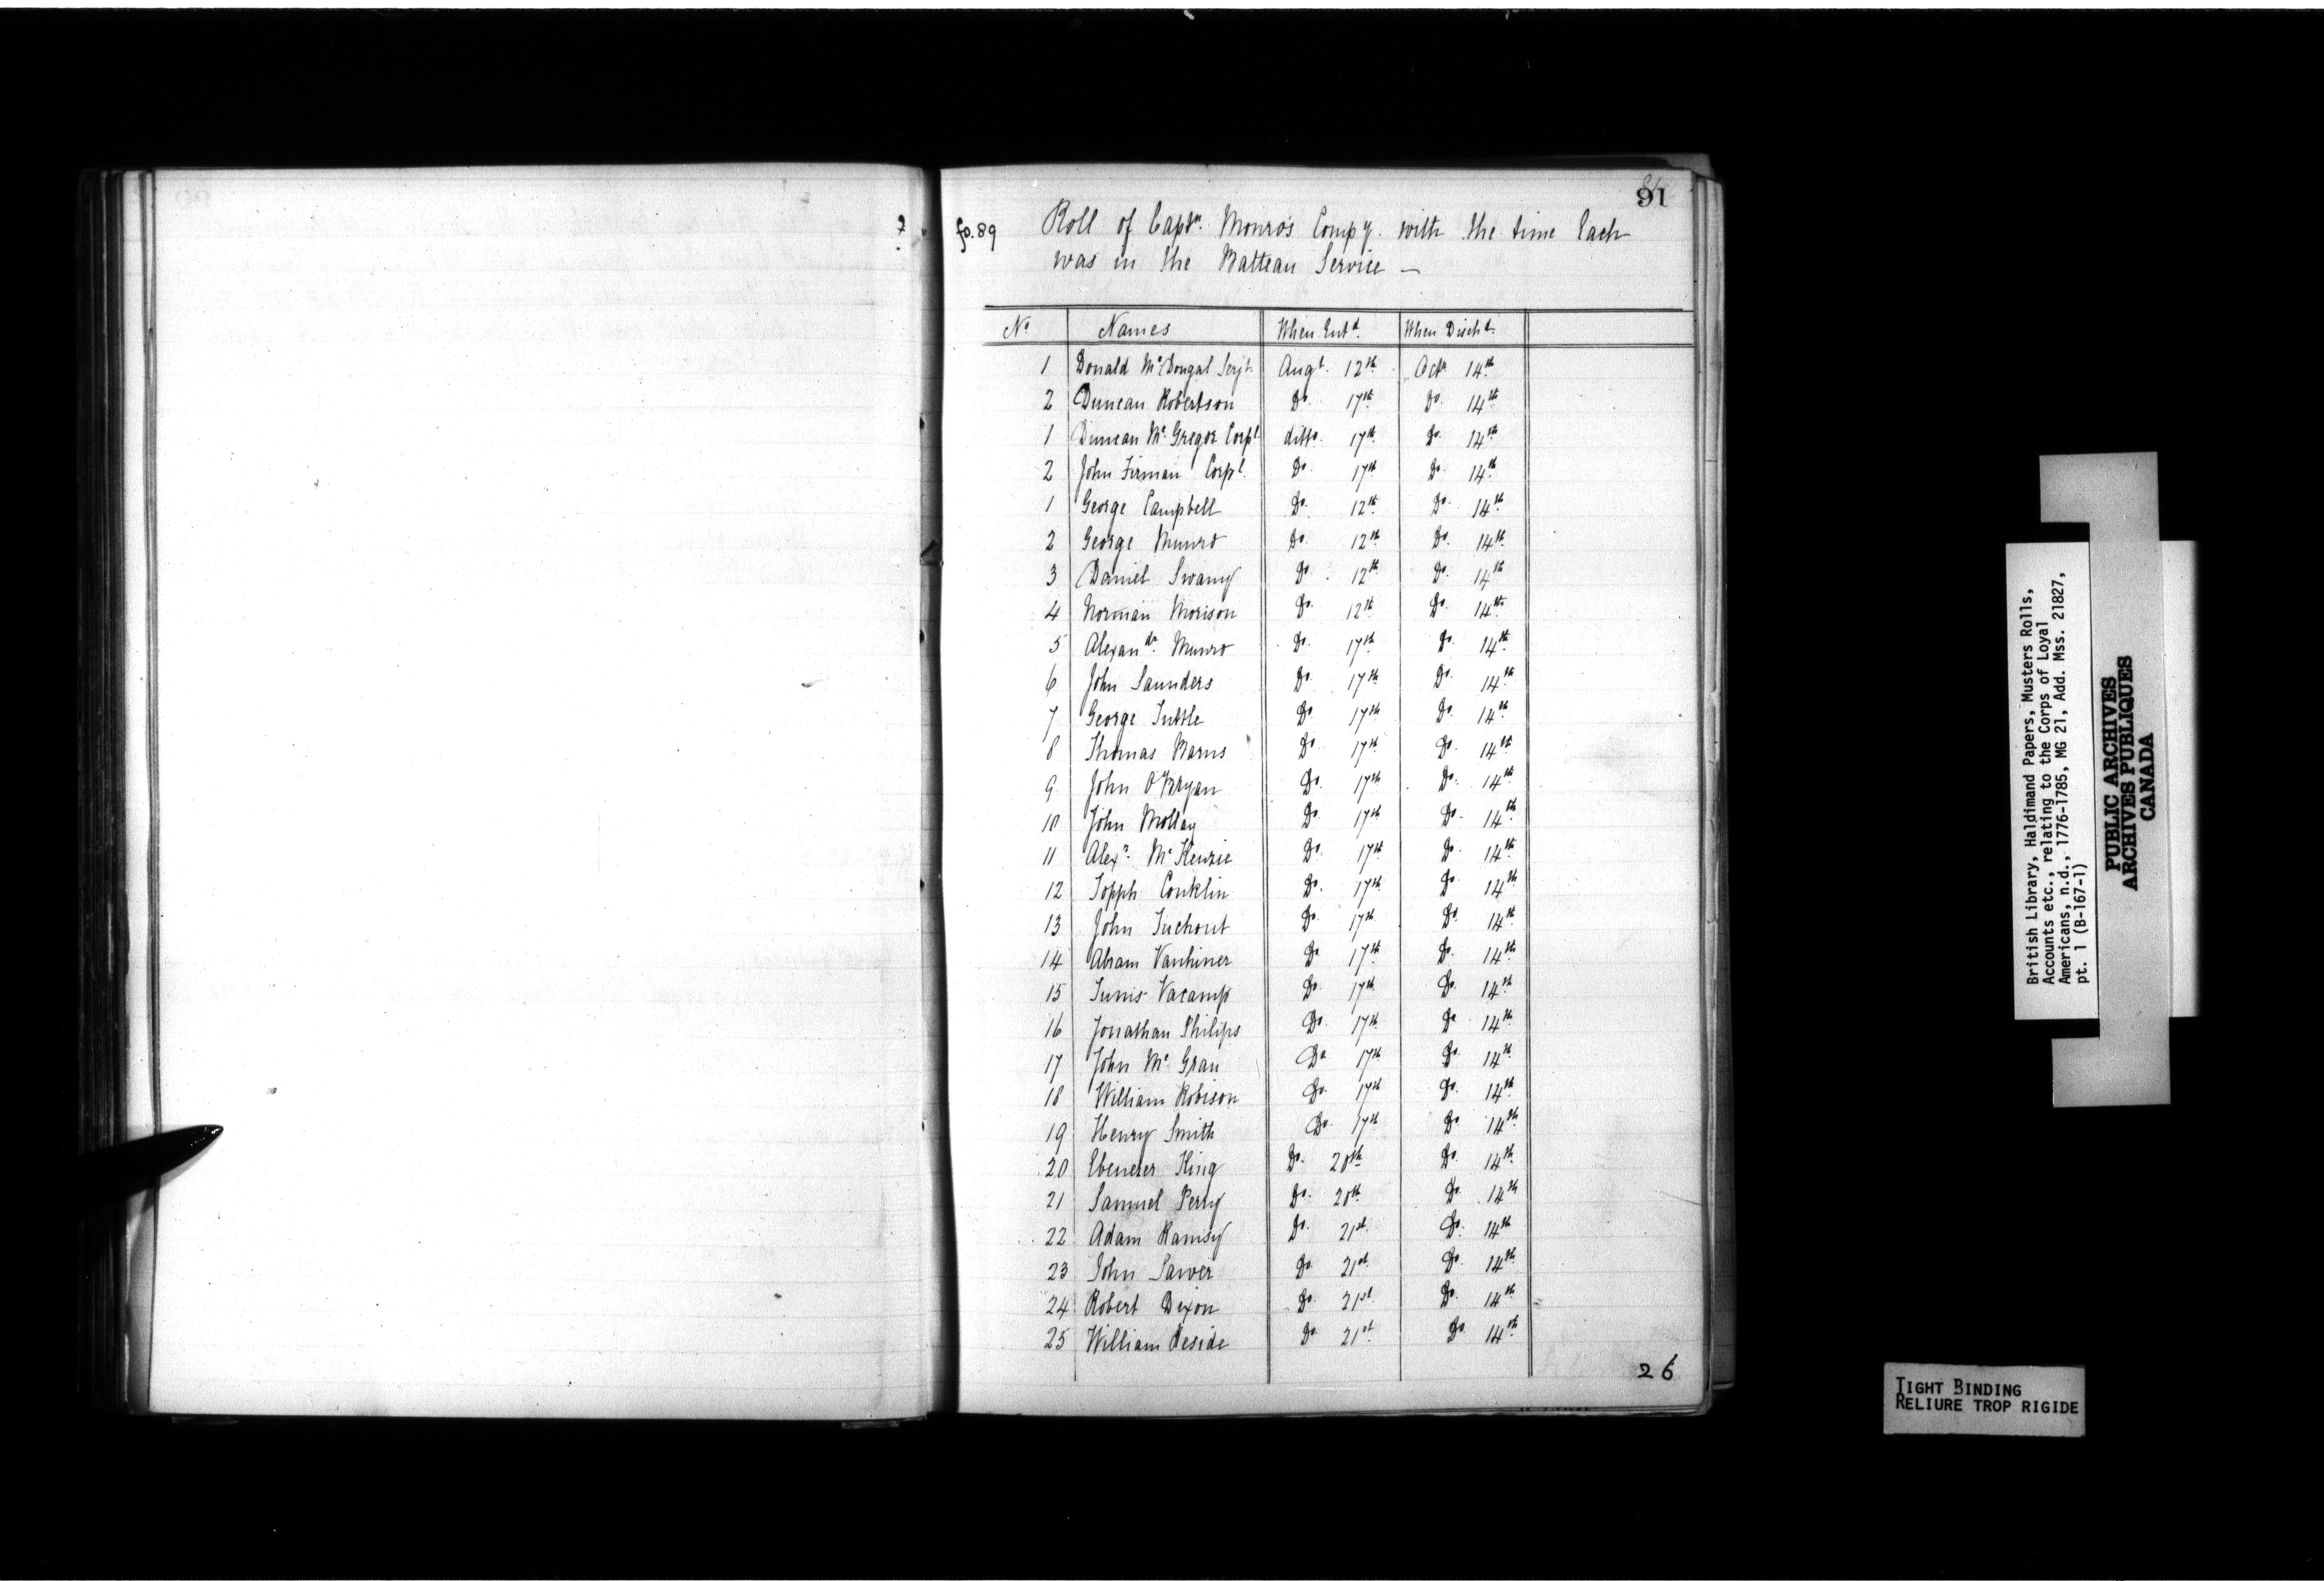 91
fo. 89
Roll of Captn. Monro's Compy. with the time Each
was in the Batteau Service —
No Names When Entd. When Dischd.
1 Donald McDougal Serjt. Augt. 12th Octr 14th
2 Duncan Robertson Do. 17th Do. 14th
1 Duncan McGregor Corpl ditto. 17th Do. 14th
2 John Firman Corpl. Do. 17th Do. 14th
1 George Campbell Do. 12th Do. 14th
2 George Munro Do. 12th Do. 14th
3 Daniel Swany Do. 12th Do. 14th
4 Norman Morison Do. 12th Do. 14th
5 Alexandr. Munro Do. 17th Do. 14th
6 John Saunders Do. 17th Do. 14th
7 George Tuttle Do. 17th Do. 14th
8 Thomas Barns Do. 17th Do. 14th
9 John O'Bryan Do. 17th Do. 14th
10 John Mollay Do. 17th Do. 14th
11 Alexr. McKenzie Do. 17th Do. 14th
12 Topph Conklin Do. 17th Do. 14th
13 John Tuchout Do. 17th Do. 14th
14 Abram Vanhiner Do 17th Do. 14th
15 Tunis Vacamp Do. 17th Do. 14th
16 Jonathan Philips Do. 17th Do 14th
17 John Mc Grau Do 17th Do. 14th
18 William Robison Do. 17th Do. 14th
19 Henry Smith Do. 17th Do 14th
20 Ebenezer King Do. 20th Do. 14th
21 Samuel Perry Do. 20th Do. 14th
22 Adam Ramsy Do. 21st. Do. 14th
23 John Sawer Do 21st. Do. 14th
24 Robert Dixon Do. 21st. Do. 14th
25 William Reside Do. 21st. Do. 14th
26
British Library, Haldimand Papers, Musters Rolls,
Accounts etc., relating to the Corps of Loyal
Americans, n.d., 1776-1785, MG 21, Add. Mss. 21827,
pt. 1 (B-167-1)
PUBLIC ARCHIVES
ARCHIVES PUBLIQUES
CANADA
TIGHT BINDING
RELIURE TROP RIGIDE